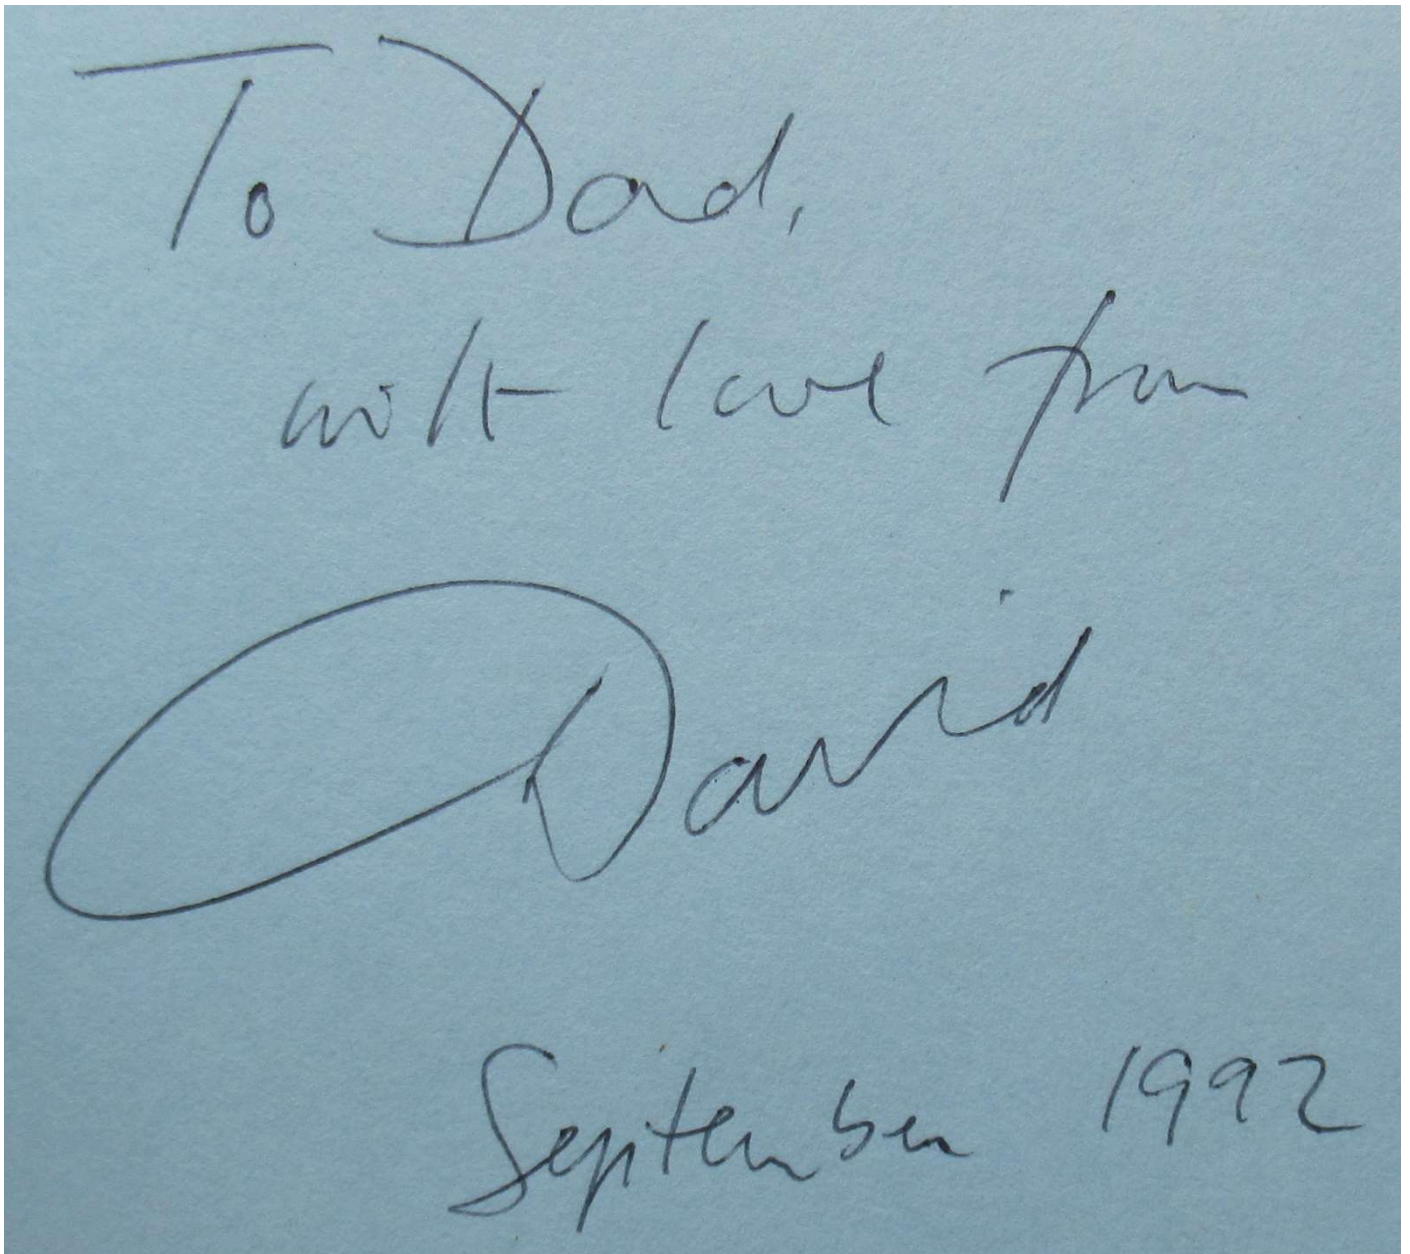 To Dad,
with love from
David
September 1992